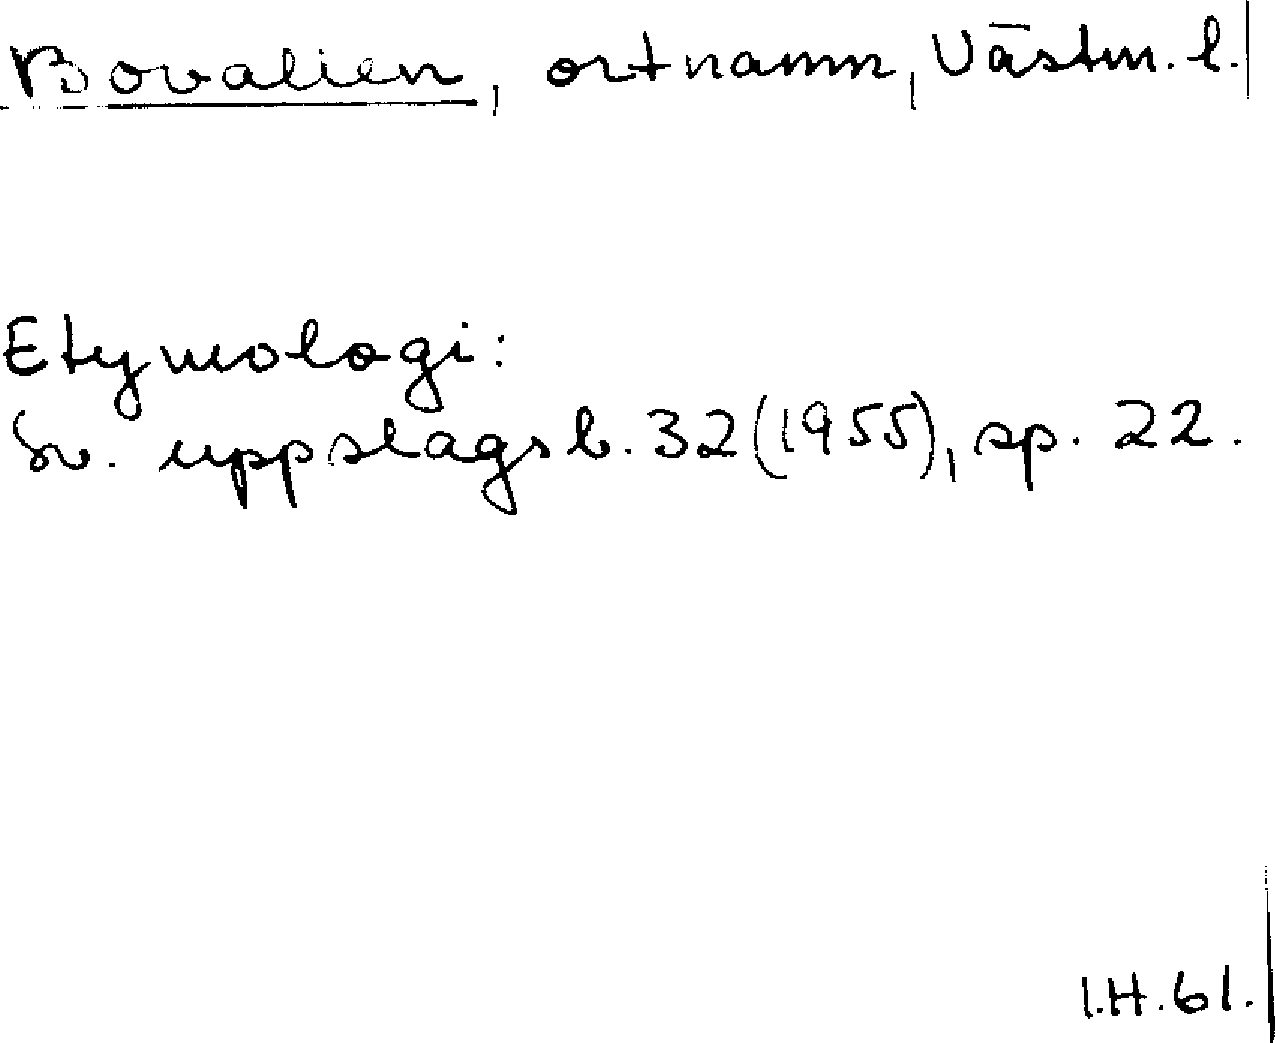 Bovalien, ortnamn, Västm. l.
Etymologi:
Sv. uppslagsb. 32 (1955), sp. 22.
I.H. 61.